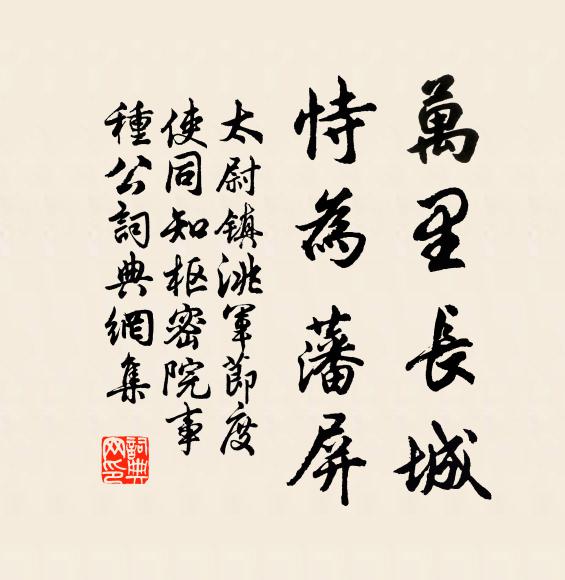 萬里長城
恃為藩屏
太尉鎮洮軍節度
使同知枢密院事
種公詞典網集
詞典網印